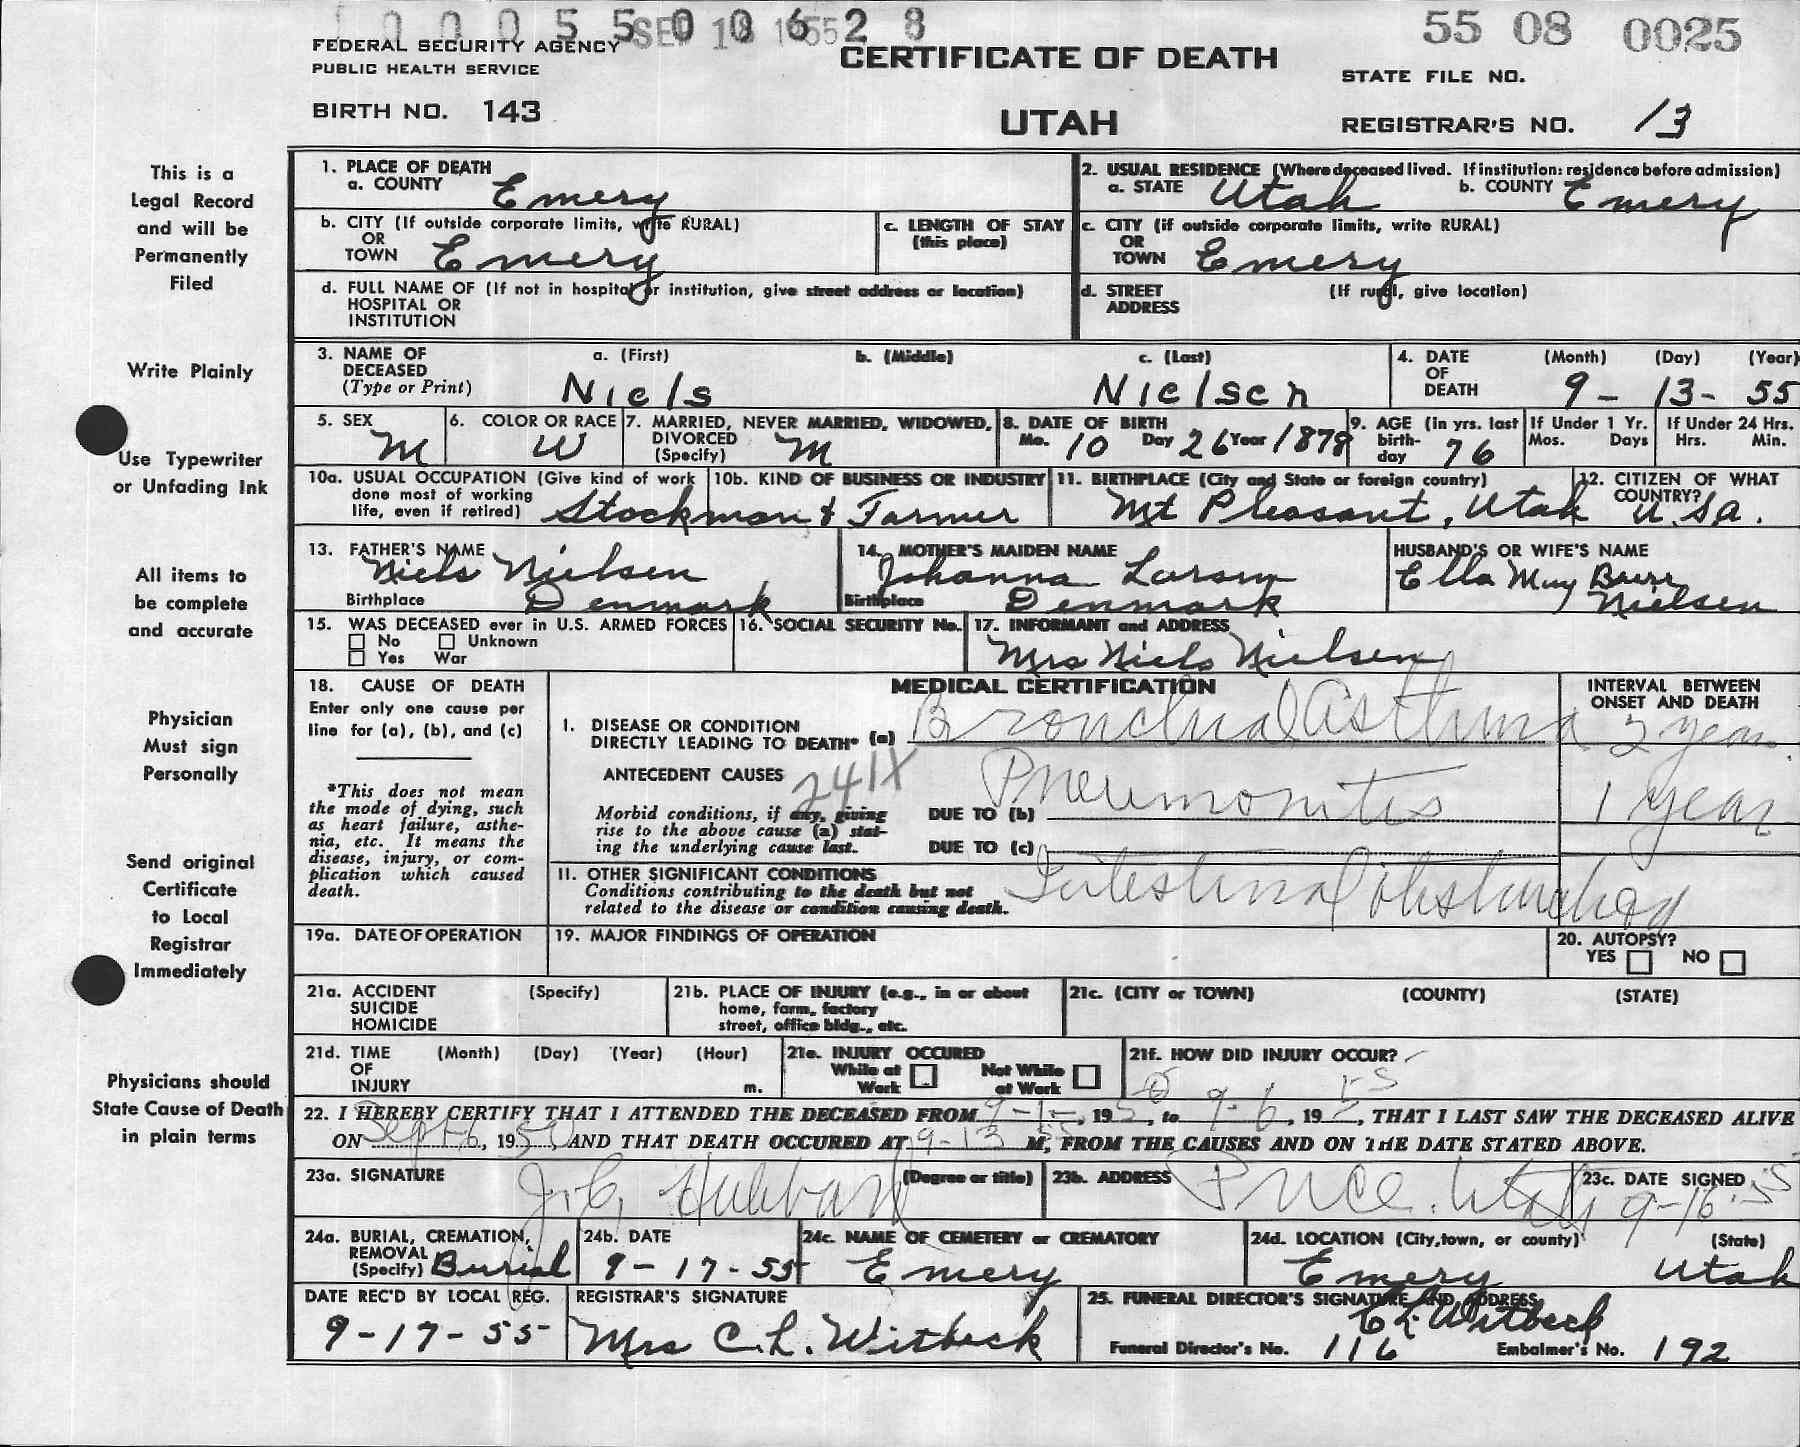 0 0 0 5 5 0 0 6 2 8
SEP 18 1955
55 08 0025
FEDERAL SECURITY AGENCY
PUBLIC HEALTH SERVICE
CERTIFICATE OF DEATH
STATE FILE NO.
BIRTH NO. 143
UTAH
REGISTRAR'S NO. 13
This is a
Legal Record
and will be
Permanently
Filed
Write Plainly
Use Typewriter
or Unfading Ink
All items to
be complete
and accurate
Physician
Must sign
Personally
Send original
Certificate
to Local
Registrar
Immediately
Physicians should
State Cause of Death
in plain terms
1. PLACE OF DEATH
a. COUNTY Emery
2. USUAL RESIDENCE (Where deceased lived. If institution: residence before admission)
a. STATE Utah b. COUNTY Emery
b. CITY (If outside corporate limits, write RURAL)
OR
TOWN Emery
c. LENGTH OF STAY
(this place)
c. CITY (if outside corporate limits, write RURAL)
OR
TOWN Emery
d. FULL NAME OF (If not in hospital or institution, give street address or location)
HOSPITAL OR
INSTITUTION
d. STREET (If rural, give location)
ADDRESS
3. NAME OF DECEASED (Type or Print)
a. (First) b. (Middle) c. (Last)
Niels Nielsen
4. DATE OF DEATH (Month) (Day) (Year)
9 - 13 - 55
5. SEX M
6. COLOR OR RACE W
7. MARRIED, NEVER MARRIED, WIDOWED,
DIVORCED
(Specify) M
8. DATE OF BIRTH
Mo. 10 Day 26 Year 1878
9. AGE (In yrs. last
birth-
day 76
If Under 1 Yr.
Mos. Days
If Under 24 Hrs.
Hrs. Min.
10a. USUAL OCCUPATION (Give kind of work
done most of working
life, even if retired) Stockman & Farmer
10b. KIND OF BUSINESS OR INDUSTRY
11. BIRTHPLACE (City and State or foreign country)
Mt Pleasant, Utah
12. CITIZEN OF WHAT
COUNTRY?
U.S.A.
13. FATHER'S NAME
Niels Nielsen
Birthplace Denmark
14. MOTHER'S MAIDEN NAME
Johanna Larsen
Birthplace Denmark
HUSBAND'S OR WIFE'S NAME
Ella May
Nielsen
15. WAS DECEASED ever in U.S. ARMED FORCES
No Unknown
Yes War
16. SOCIAL SECURITY No.
17. INFORMANT and ADDRESS
Mrs Niels Nielsen
18. CAUSE OF DEATH
Enter only one cause per
line for (a), (b), and (c)
*This does not mean
the mode of dying, such
as heart failure, asthe-
nia, etc. It means the
disease, injury, or com-
plication which caused
death.
MEDICAL CERTIFICATION
INTERVAL BETWEEN
ONSET AND DEATH
I. DISEASE OR CONDITION
DIRECTLY LEADING TO DEATH* (a) Bronchial Asthma 2 year
ANTECEDENT CAUSES 241X
Morbid conditions, if any, giving
rise to the above cause (a) stat-
ing the underlying cause last.
DUE TO (b) Pneumonitis 1 year
DUE TO (c)
11. OTHER SIGNIFICANT CONDITIONS
Conditions contributing to the death but not
related to the disease or condition causing death.
Intestinal
19a. DATE OF OPERATION
19. MAJOR FINDINGS OF OPERATION
20. AUTOPSY?
YES NO
21a. ACCIDENT (Specify)
SUICIDE
HOMICIDE
21b. PLACE OF INJURY (e.g., in or about
home, farm, factory
street, office bldg., etc.
21c. (CITY or TOWN) (COUNTY) (STATE)
21d. TIME (Month) (Day) (Year) (Hour)
OF
INJURY m.
21e. INJURY OCCURED
While at Work Not While at Work
21f. HOW DID INJURY OCCUR?
22. I HEREBY CERTIFY THAT I ATTENDED THE DECEASED FROM 9-1-, 1950, to 9-6, 1955, THAT I LAST SAW THE DECEASED ALIVE
ON Sept 6, 195 , AND THAT DEATH OCCURED AT 9-13 55 M, FROM THE CAUSES AND ON THE DATE STATED ABOVE.
23a. SIGNATURE (Degree or title)
J.C. Hubbard
23b. ADDRESS Price, Utah
23c. DATE SIGNED
9-16-55
24a. BURIAL, CREMATION,
REMOVAL
(Specify) Burial
24b. DATE
9-17-55
24c. NAME OF CEMETERY or CREMATORY
Emery
24d. LOCATION (City, town, or county) (State)
Emery Utah
DATE REC'D BY LOCAL REG.
9-17-55
REGISTRAR'S SIGNATURE
Mrs C.L. Witbeck
25. FUNERAL DIRECTOR'S SIGNATURE AND ADDRESS
C L Witbeck
Funeral Director's No. 116 Embalmer's No. 192